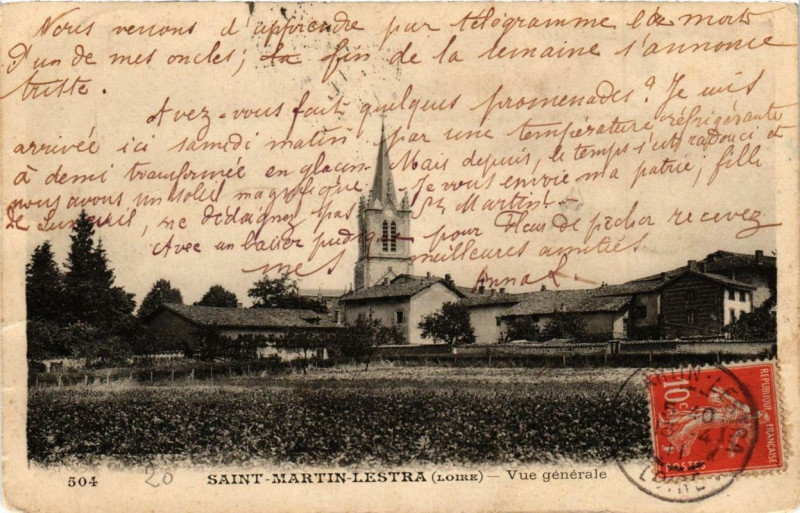 Nous venons d'apprendre par télégramme la mort
d'un de mes oncles; La fin de la semaine s'annonce
triste.
Avez-vous fait quelques promenades? Je suis
arrivée ici samedi matin par une température réfrigérante
à demi transformée en glaçon. Mais depuis, le temps s'est radouci et
nous avons un soleil magnifique. Je vous envoie ma patrie, fille
de ne dédaignez pas St Martin.
Avec un baiser pour Fleur de pêcher recevez
mes meilleures amitiés
Anna L.
504
20
SAINT-MARTIN-LESTRA (LOIRE) — Vue générale
REPUBLIQUE FRANÇAISE
10c
LOIRE